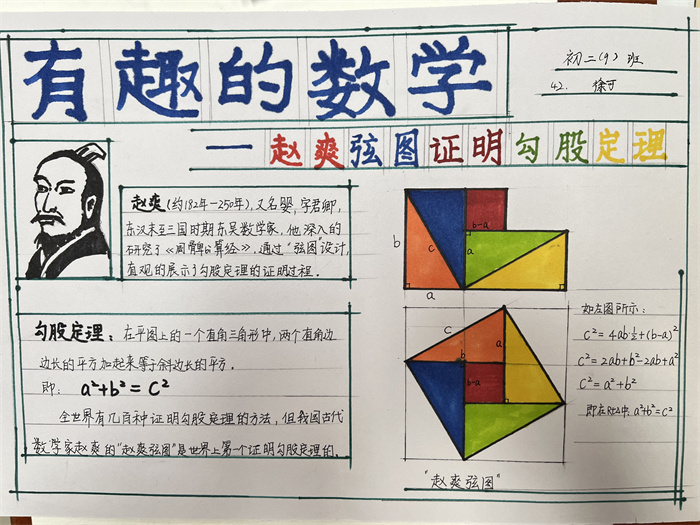 有趣的数学
初二(9)班
42. 徐可
—赵爽弦图证明勾股定理
赵爽(约182年—250年),又名婴,字君卿,
东汉末至三国时期东吴数学家,他深入的
研究了《周髀算经》,通过"弦图"设计,
直观的展示了勾股定理的证明过程.
勾股定理:在平图上的一个直角三角形中,两个直角边
边长的平方加起来等于斜边长的平方.
即: a²+b²=c²
全世界有几百种证明勾股定理的方法,但我国古代
数学家赵爽的"赵爽弦图"是世界上第一个证明勾股定理的.
b
c
a
b-a
a
c
a
b
b-a
"赵爽弦图"
如左图所示:
c²=4ab½+(b-a)²
c²=2ab+b²-2ab+a²
c²=a²+b²
即在Rt△中: a²+b²=c²